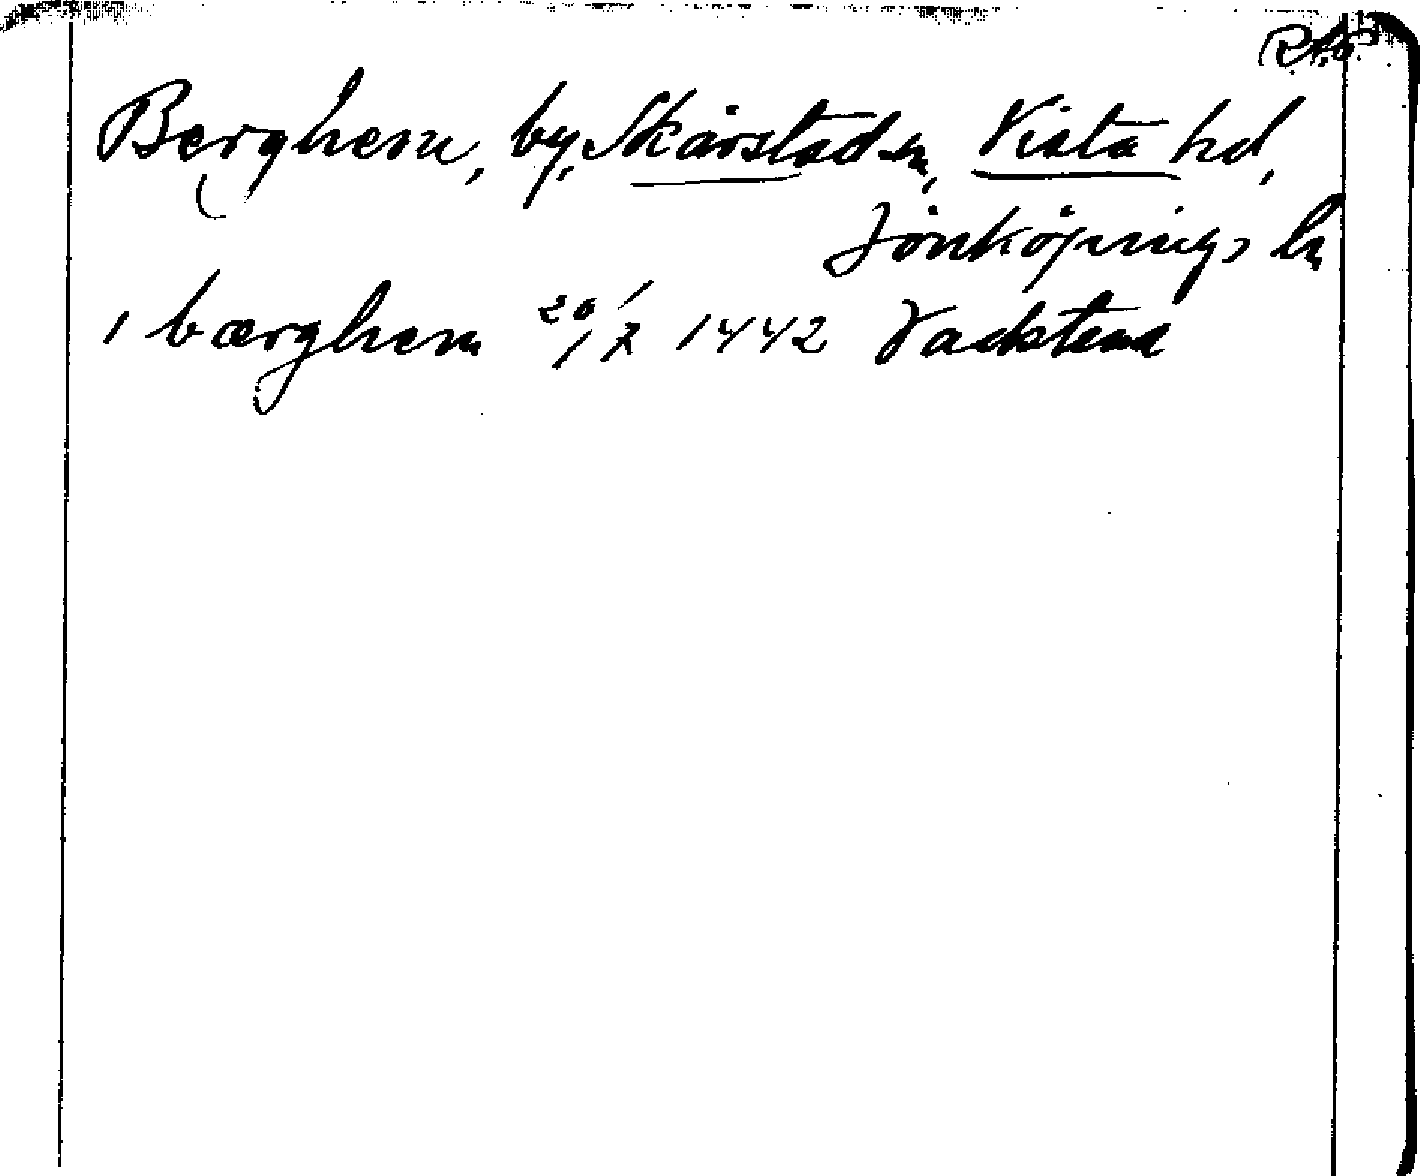 RAp
Berghem, by, Skärstad sn, Vista hd,
Jönköpings ln
i bærghem 20/7 1442 Vadstena